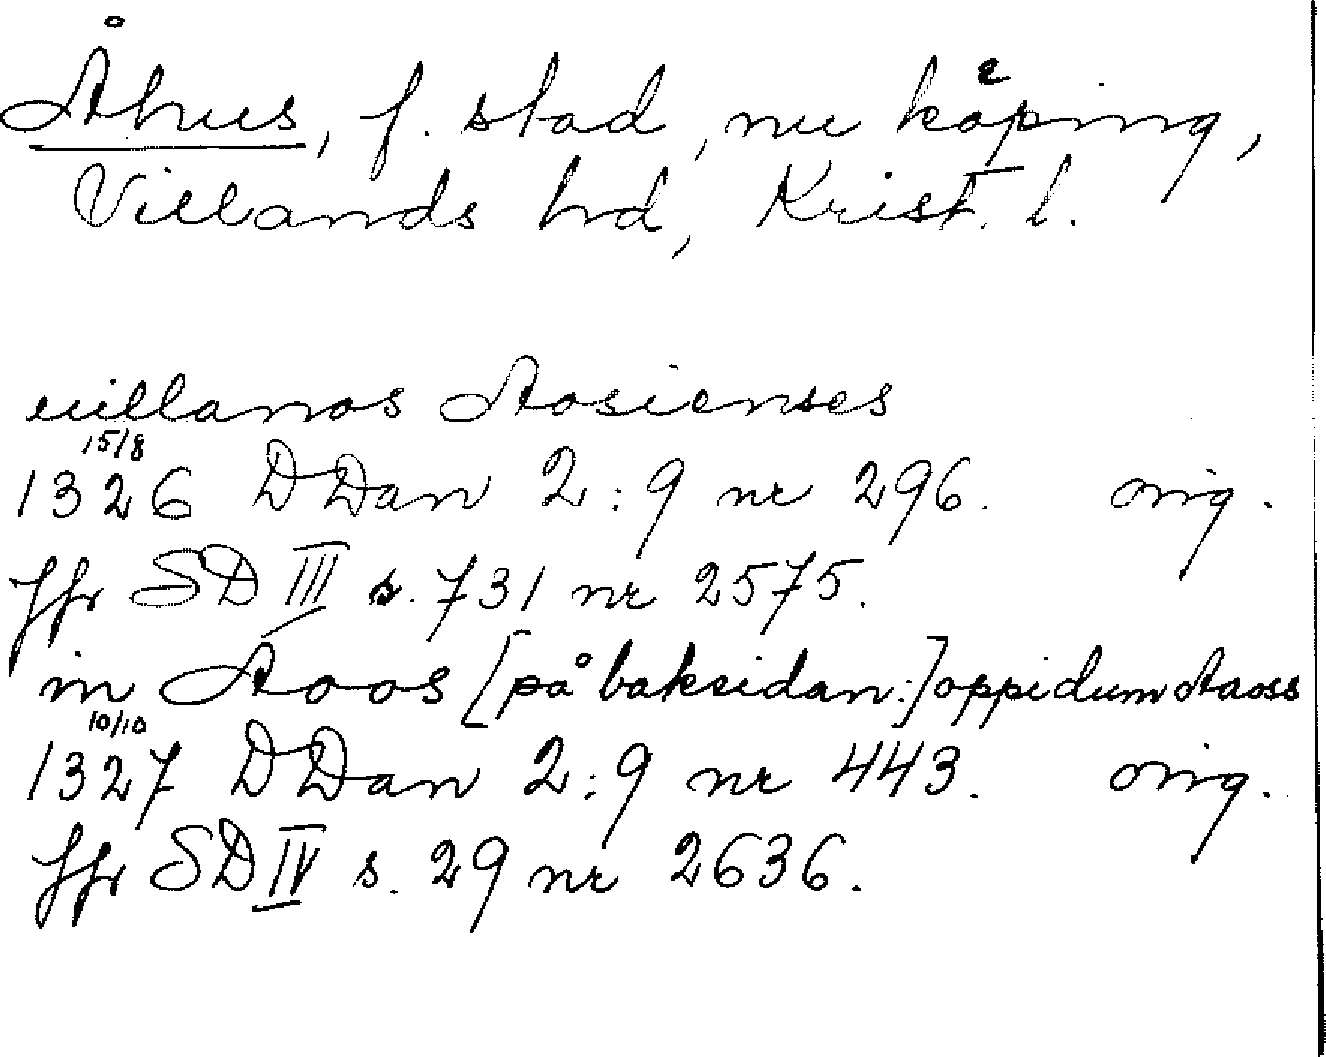 Åhus, f. stad, nu köping,
Villands hd, Krist. l.
uillanos Aosienses
15/8
1326 DDan 2:9 nr 296. orig.
Jfr SD III s. 731 nr 2575.
in Aoos [på baksidan:] oppidum Aaoss
10/10
1327 DDan 2:9 nr 443. orig.
Jfr SD IV s. 29 nr 2636.